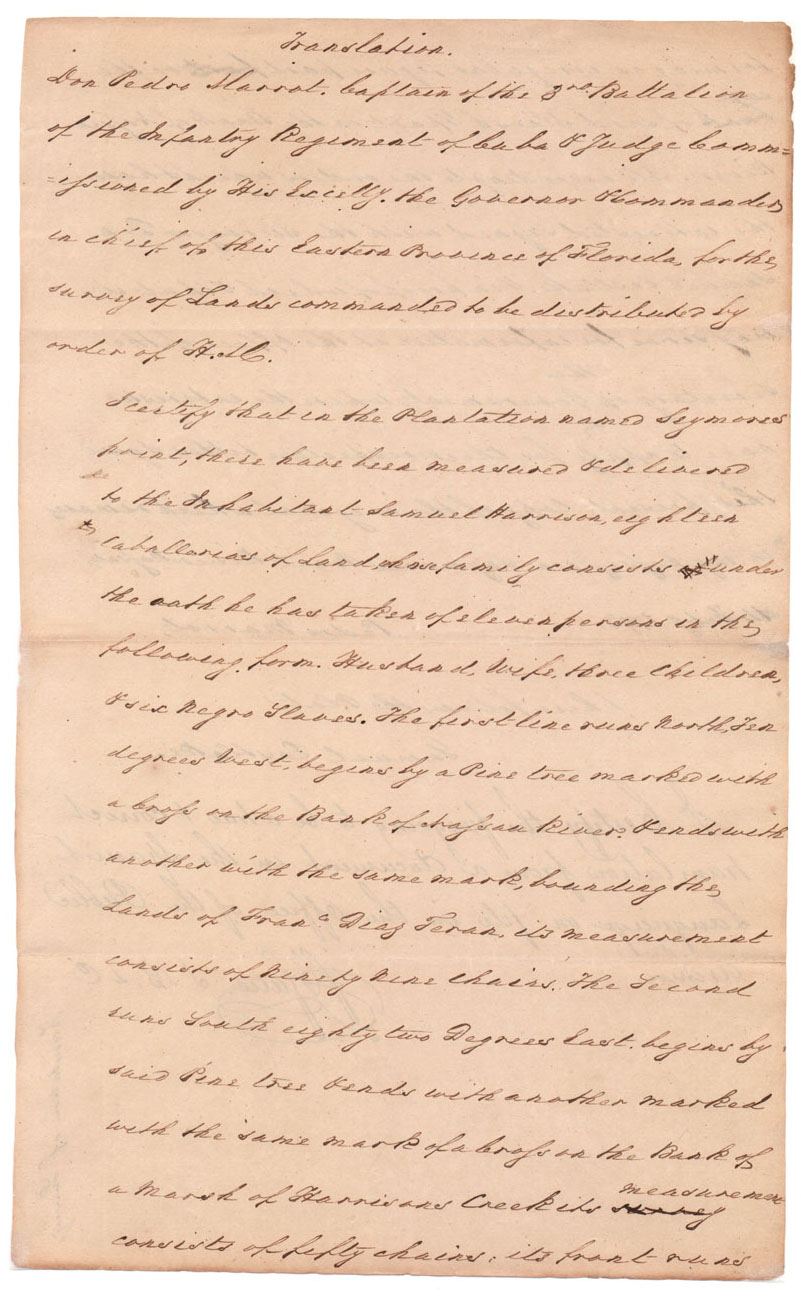 Translation.
Don Pedro Marrot. Captain of the 3rd Battalion
of the Infantry Regiment of Cuba & Judge Comm=
=issioned by His Excelly. the Governor & Commander
in chief of this Eastern Province of Florida, for the
survey of Lands commanded to be distributed by
order of H.M.
I certify that in the Plantation named Seymores
point, there have been measured & delivered
to the Inhabitant Samuel Harrison, eighteen
Caballerias of Land, whose family consists under
the oath he has taken of eleven persons in the
following form. Husband, Wife, three Children,
& six Negro Slaves. The first line runs North, Ten
degrees West, begins by a Pine tree marked with
a Cross on the Bank of Nassau River, & ends with
another with the same mark, bounding the
Lands of Franco Diaz Teran, its measurement
consists of Ninety Nine Chains. The Second
runs South eighty two Degrees East. begins by
said Pine tree & ends with another marked
with the same mark of a Cross on the Bank of
a Marsh of Harrisons Creek its survey measurement
consists of fifty chains; its front runs